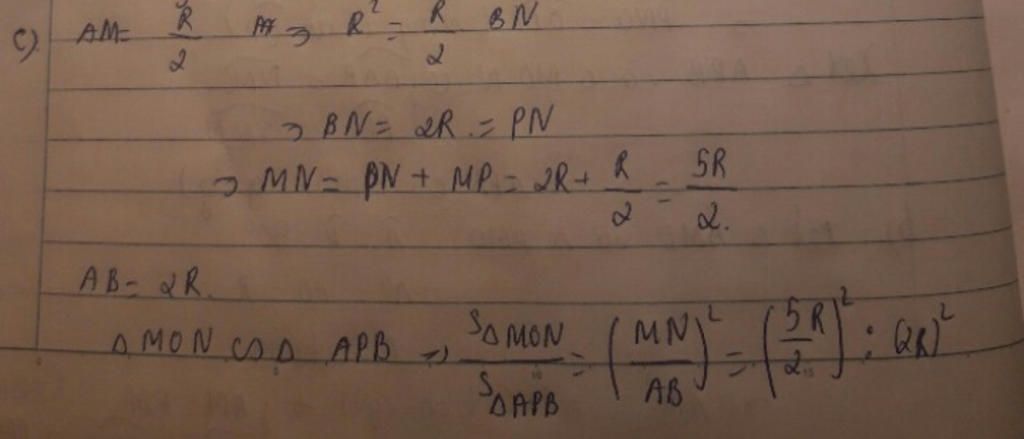 c) AM = R/2 ⇒ R² = R/2 BN
⇒ BN = 2R = PN
⇒ MN = PN + MP = 2R + R/2 = 5R/2.
AB = 2R.
Δ MON ∽ Δ APB ⇒ SΔMON/SΔAPB = (MN/AB)² = (5R/2)² : (2R)²